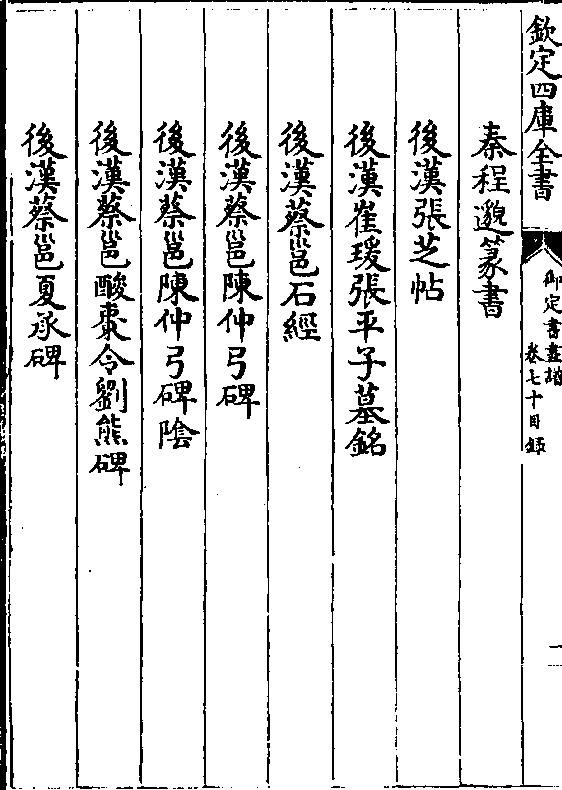 欽定四庫全書
御定書畫譜
卷七十目錄
一
秦程邈篆書
後漢張芝帖
後漢崔瑗張平子墓銘
後漢蔡邕石經
後漢蔡邕陳仲弓碑
後漢蔡邕陳仲弓碑陰
後漢蔡邕酸棗令劉熊碑
後漢蔡邕夏承碑